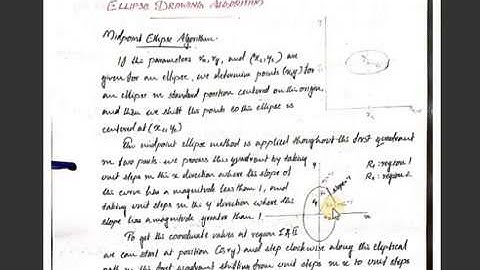 ELLIPSE DRAWING ALGORITHM
Midpoint Ellipse Algorithm.
If the parameters rx, ry, and (xc, yc) are
given for an ellipse, we determine points (x,y) for
an ellipse in standard position centered on the origin,
and then we shift the points so the ellipse is
centered at (xc, yc)
The midpoint ellipse method is applied throughout the first quadrant
in two parts. we process this quadrant by taking
unit steps in the x direction where the slope of
the curve has a magnitude less than 1, and
taking unit steps in the y direction where the
slope has a magnitude greater than 1
R1: region 1
R2: region 2
To get the coordinate values at region I & II
we can start at position (0, ry) and step clockwise along the elliptical
path in the first quadrant shifting from unit steps in x to unit steps